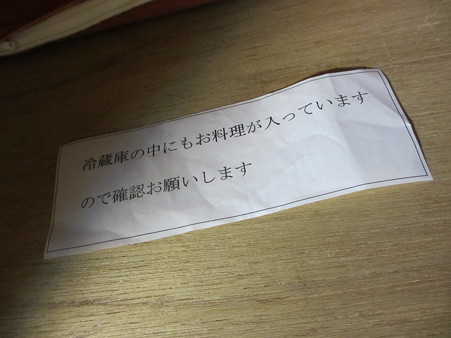 冷蔵庫の中にもお料理が入っています
ので確認お願いします